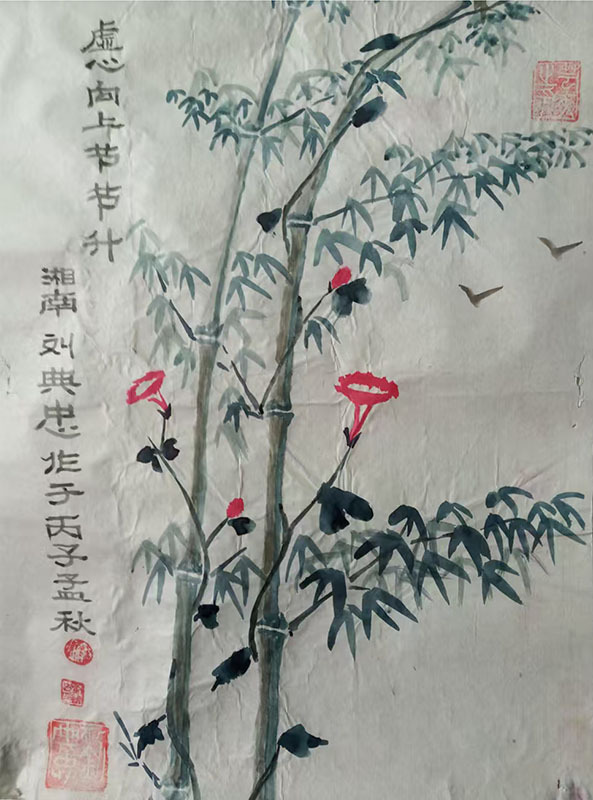 虚心向上节节升
湘南刘典忠作于丙子孟秋